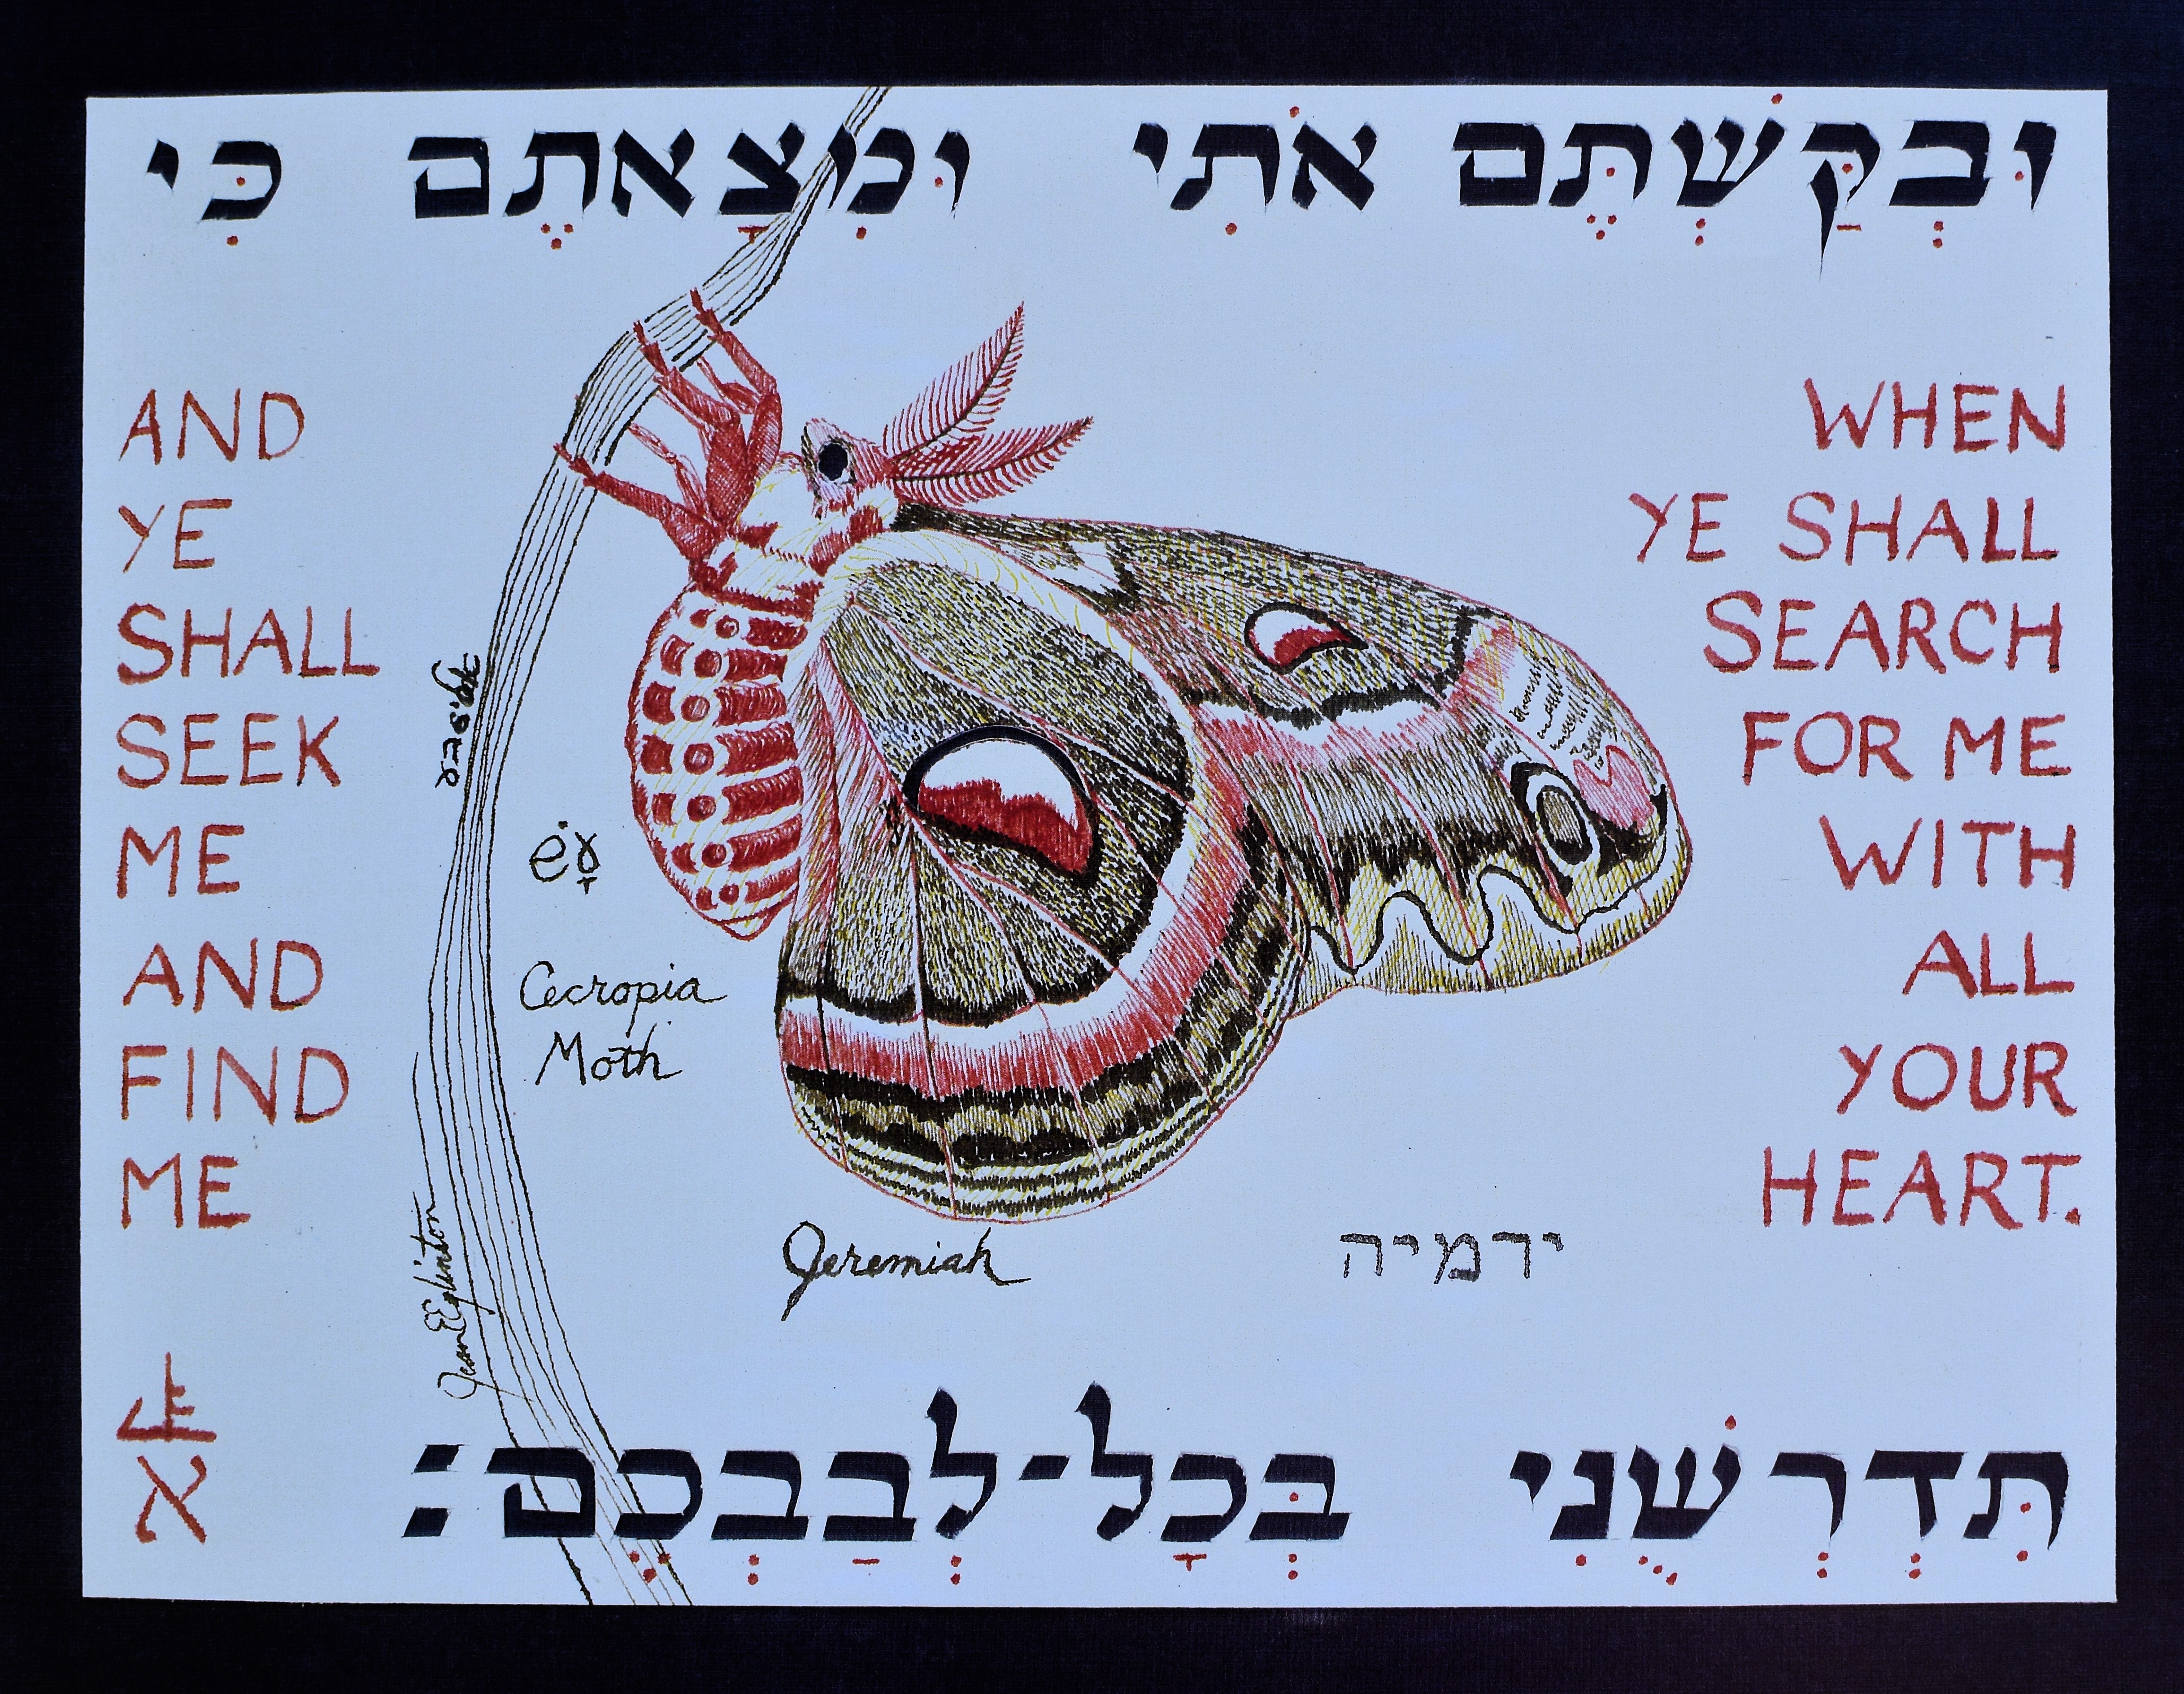 וּבְקַּשְׁתֶּם אֹתִי וּמְצָאתֶם כִּי
AND
YE
SHALL
SEEK
ME
AND
FIND
ME
WHEN
YE SHALL
SEARCH
FOR ME
WITH
ALL
YOUR
HEART.
Cecropia
Moth
Jeremiah
ירמיה
Jean E Eglinton
א
תִּדְרְשֻׁנִי בְּכָל־לְבַבְכֶם׃